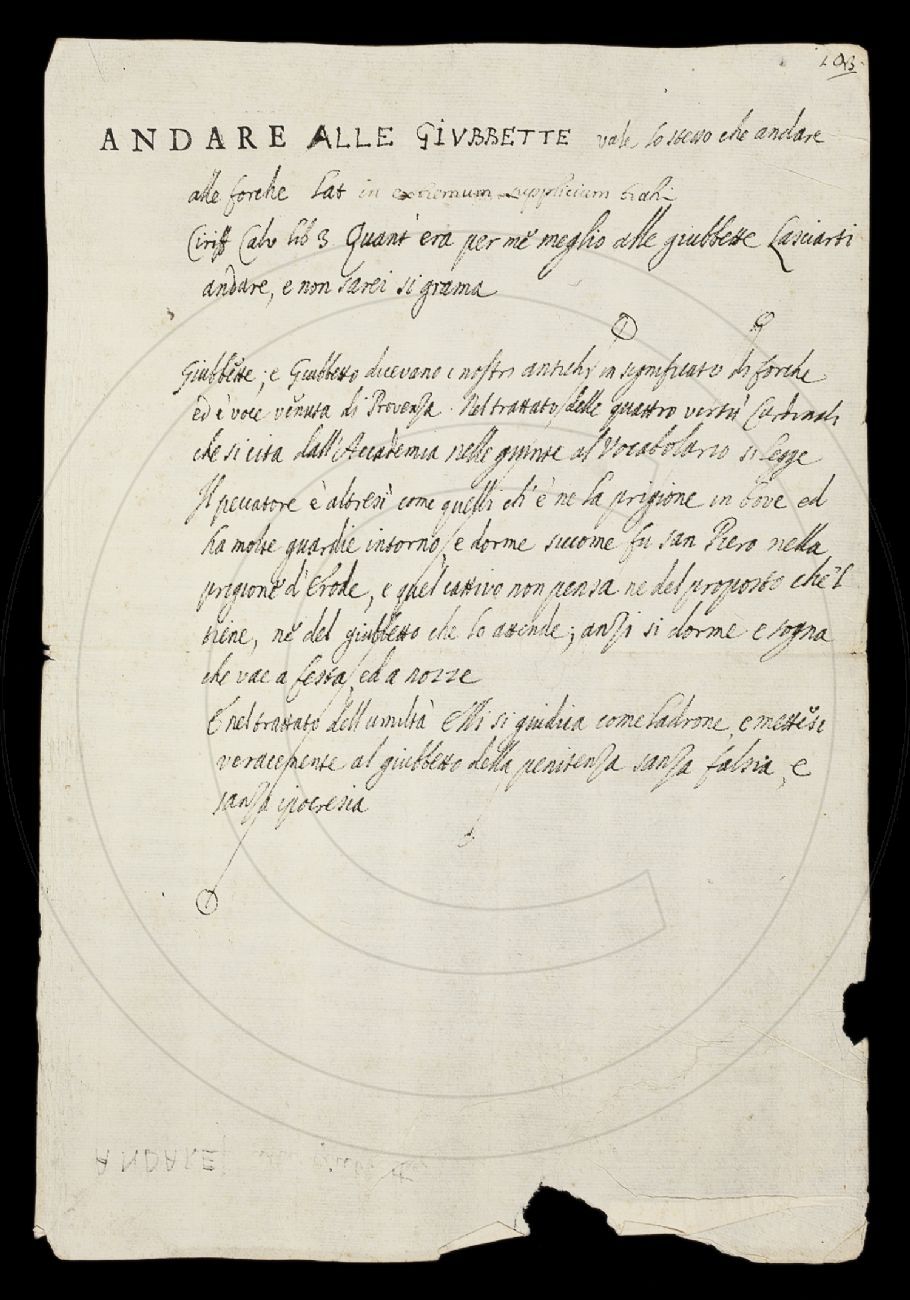 103
ANDARE ALLE GIVBBETTE vale lo stesso che andare
alle forche Lat in extremum supplicium trahi
Ciriff Calv lib 3 Quant era per me meglio alle giubbette Lasciarti
andare, e non sarei si grama
Giubbette, e Giubbetto dicevano i nostri antichi in significato di forche
ed è voce venuta di Provenza. Nel trattato delle quattro vertù Cardinali
che si cita dall'Accademia nelle giunte al Vocabolario si legge
Il peccatore è altresì come quelli ch'è ne la prigione in bove ed
ha molte guardie intorno, e dorme siccome fu san Piero nella
prigione d'Erode, e quel cattivo non pensa ne del proposto che'l
tiene, ne del giubbetto che lo attende; anzi si dorme e sogna
che vae a festa, ed a nozze
E nel trattato dell'umiltà Elli si giudica come ladrone, e mettesi
veracemente al giubbetto della penitenza sanza falsia, e
sanza ipocresia
ANDARE